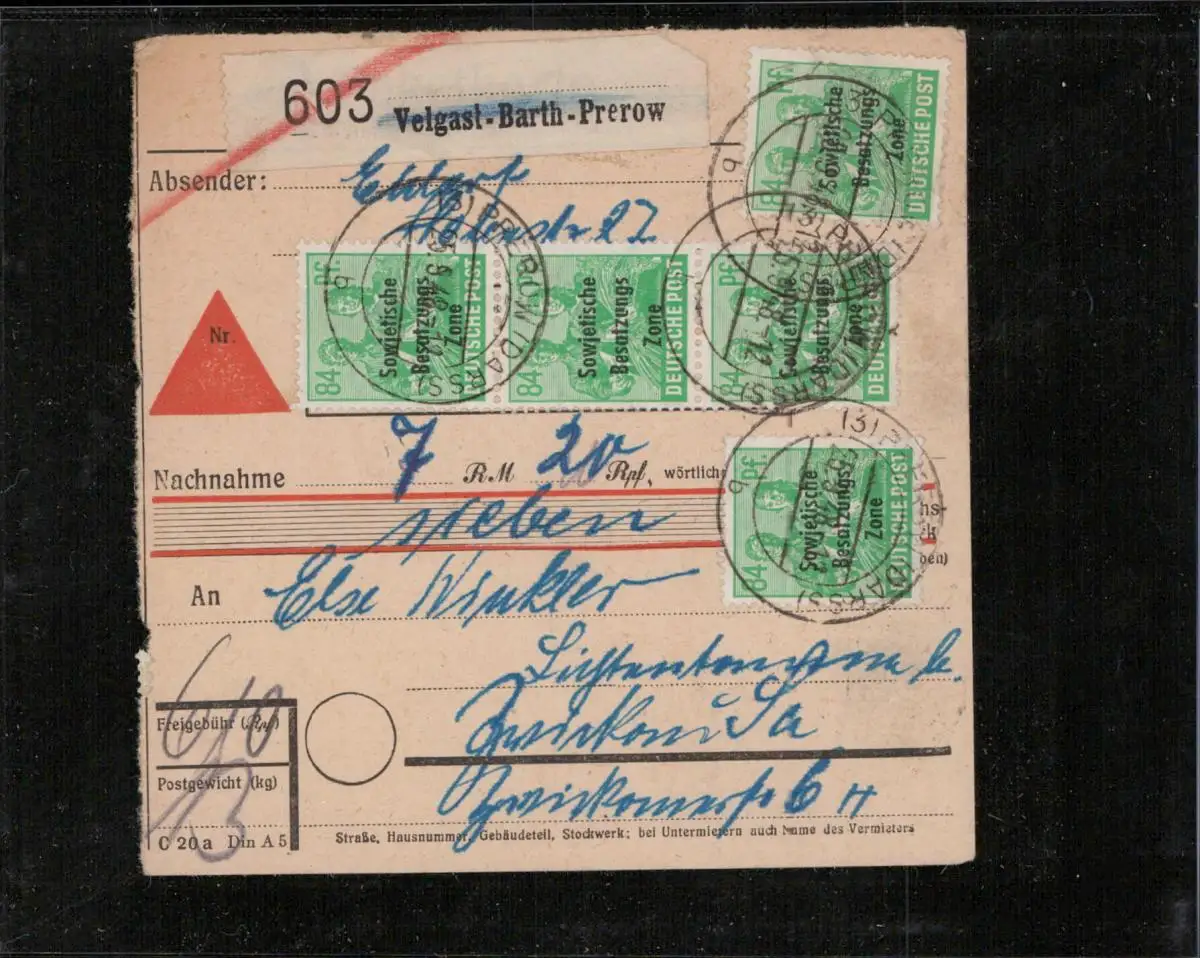 603
Velgast-Barth-Prerow
Absender:
Sowjetische
Besatzungs
Zone
84 Pf.
DEUTSCHE POST
(3) PREROW (DARSS)
b
Sowjetische
Besatzungs
Zone
84 Pf.
DEUTSCHE POST
(3) PREROW (DARSS)
b
Sowjetische
Besatzungs
Zone
84
DEUTSCHE POST
Sowjetische
Besatzungs
Zone
84 Pf.
DEUTSCHE POST
(DARSS)
Nr.
Nachnahme 7 RM 20 Rpf, wörtlich
sieben
Sowjetische
Besatzungs
Zone
84 Pf.
DEUTSCHE POST
(DARSS)
b
An Else Winkler
Zwickau i Sa
Freigebühr (Rpf)
Postgewicht (kg)
C 20a Din A 5
Straße, Hausnummer, Gebäudeteil, Stockwerk; bei Untermietern auch Name des Vermieters